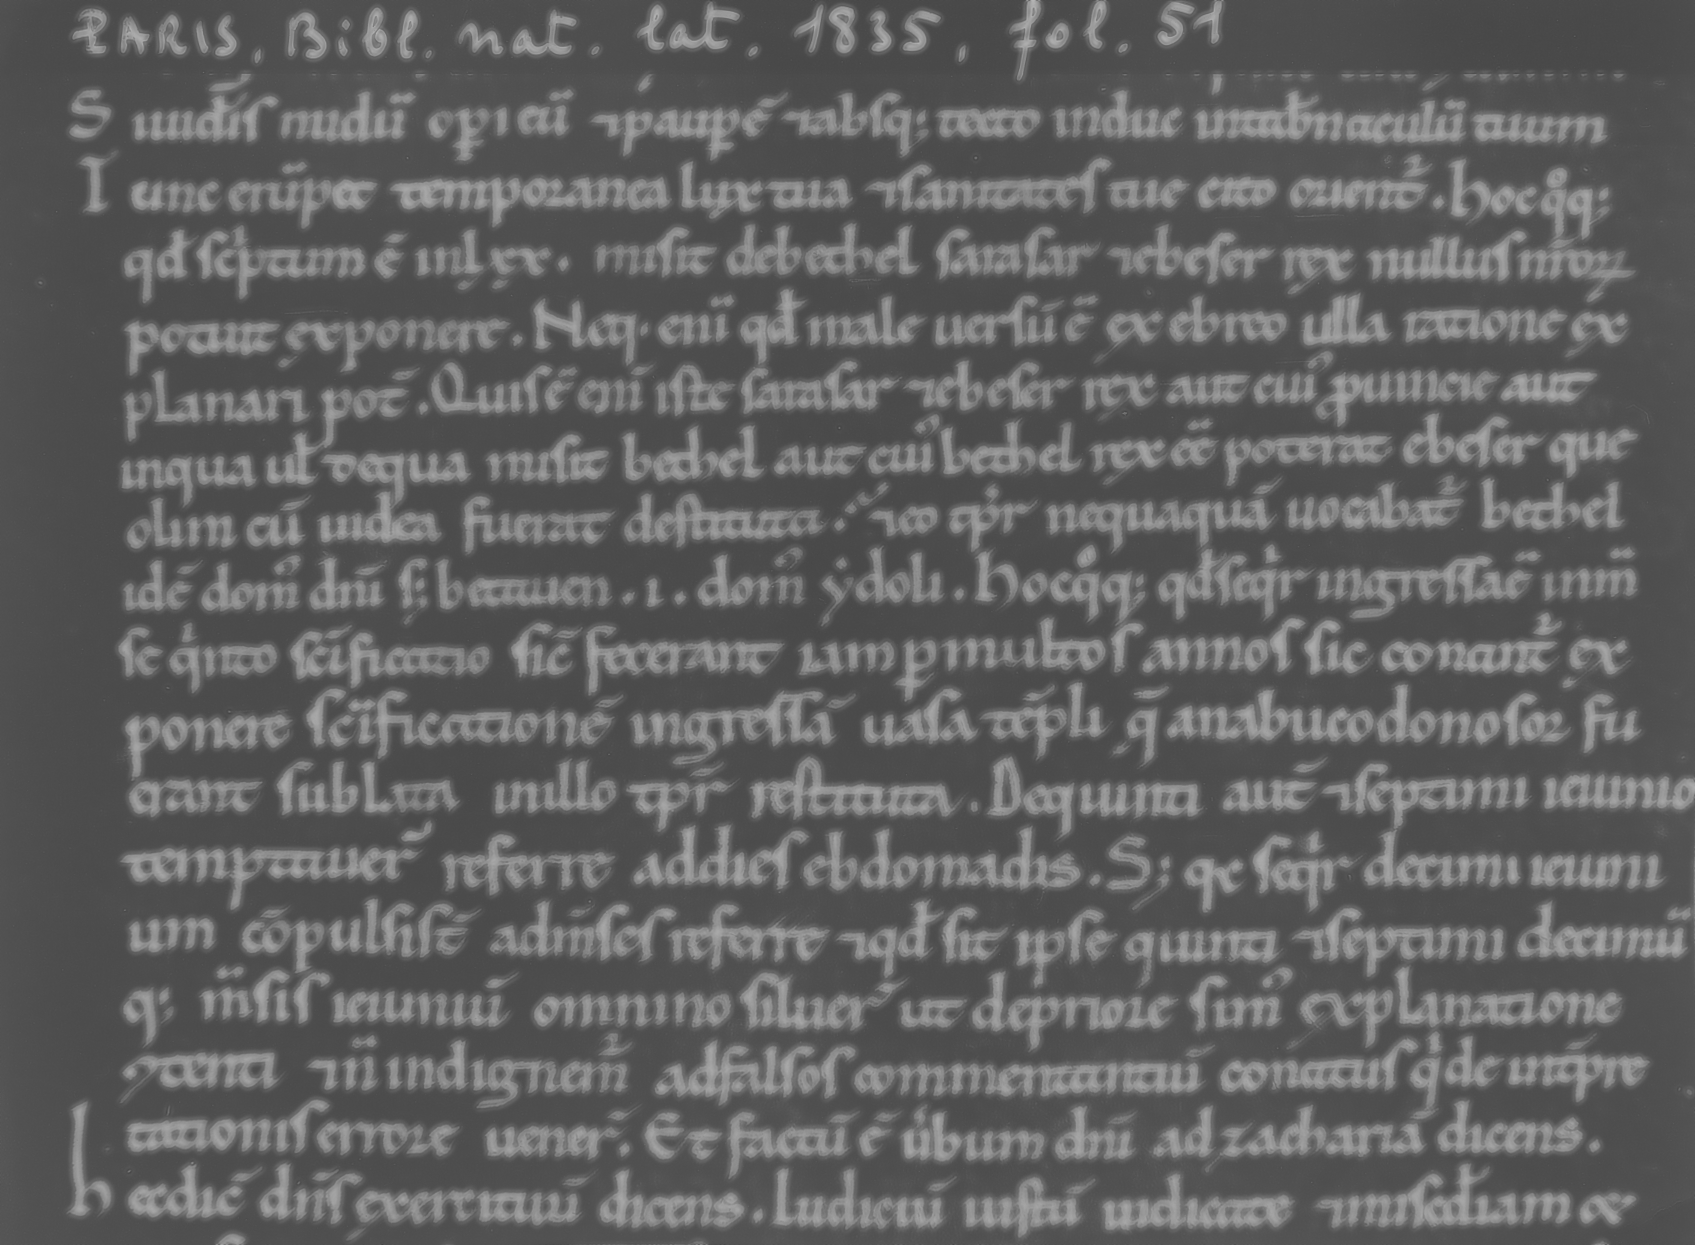 PARIS, Bibl. nat. lat. 1835, fol. 51
S iuid̄is nudū opi eū ⁊paupē ⁊absq; tecto induc intab̄naculū tuum
T unc erūpet temporanea lux tua ⁊sanitates tue cito orient᷑. Hocqͦq;
qđ scͥptum ē inlxx. misit debethel sarasar ⁊ebeser rex nullus nr̄oꝝ
potuit exponere. Neq; eni qđ male uersū ē ex ebreo ulla ratione ex
planari pot̄. Quis ē eni iste sarasar ⁊ebeser rex aut cuiꝰ ꝓuincie aut
inqua ul̄ dequa misit bethel aut cuiꝰ bethel rex eē poterat ebeser que
olim cū iudea fuerat destituta. ⁊eo tp̄r nequaquā uocabat᷑ bethel
idē domꝰ dn̄i s; bethauen .i. domꝰ ydoli. Hocqͦq; qđ seqͥr ingressa ē in m̄
se qͥnto scīficatio sic̄ fecerant iam ꝑ multos annos sic conant᷑ ex
ponere scīficationē ingressā uasa tēpli q̄ anabucodonosor fu
erant sublata inillo tp̄r restituta. Dequinti aut̄ ⁊septimi ieiunio
temptauer̄ referre addies ebdomadis. S; qr seqͥr decimi ieiuni
um cōpulsi st̄ adm̄ses referre ⁊qđ sit ipse quinti ⁊septimi decimū
q; m̄sis ieiuniū omnino siluer̄ ut depriore simꝰ explanatione
ꝯtenti ⁊n̄ indignem᷑ adfalsos commentantiū conatus qͥ de int̄pre
tationis errore uener̄. Et factū ē u̓bum dn̄i ad zachariā dicens.
h ec dic̄ dn̄s exercituū dicens. Iudiciū iustū iudicate ⁊misc̄diam &